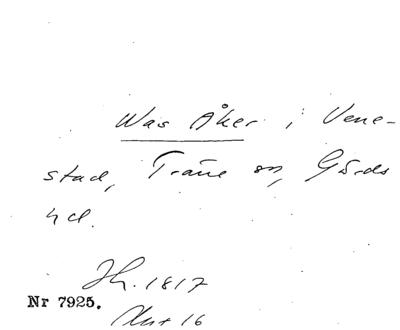 Was Åker i Vene-
stad, Träne sn, Gärds
hd.
Jh. 1817
Nr 7925.
Akt 16